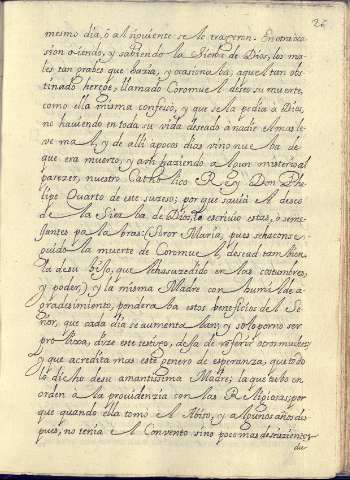 26
mesmo dia, ó al siguiente se lo trageron. En otra oca
sion oiendo, y sabiendo la Sierba de Dios, los ma
les tan grabes que hazia, y ocasionaba, aquel tan obs
tinado herege, llamado Coromuel deseo su muerte,
como ella misma confesó, y que se la pedia à Dios,
no haviendo en toda su vida deseado a nadie el mas le
ve mal, y de alli apocos dias vino nueba de
que era muerto, y aun haziendo algun misterio al
parezer, nuestro Catholico Rey Don Phe
lipe Quarto de este suzeso; por que savia el deseo
de la Sierba, de Dios, la escriuio estas, o seme
jantes palabras: Soror Maria, pues se ha conse
guido la muerte de Coromuel, desead tambien
la de su hijo, que le ha suzedido en las costumbres,
y poder) y la misma Madre con humilde a
gradesimiento, ponderaba estos benefiçios del Se
ñor, que cada dia se aumentaban; y solo por no ser
prolixa, dize este testigo, deja de referir otros muchos
y que acredita mas este genero de esperanza, que todo
lo dicho de su amantissima Madre; la que tubo en
orden a la providenzia con las Religiosas; por
que quando ella tomó el Abito, y algunos años des
pues, no tenia el Convento sino poco mas de
die